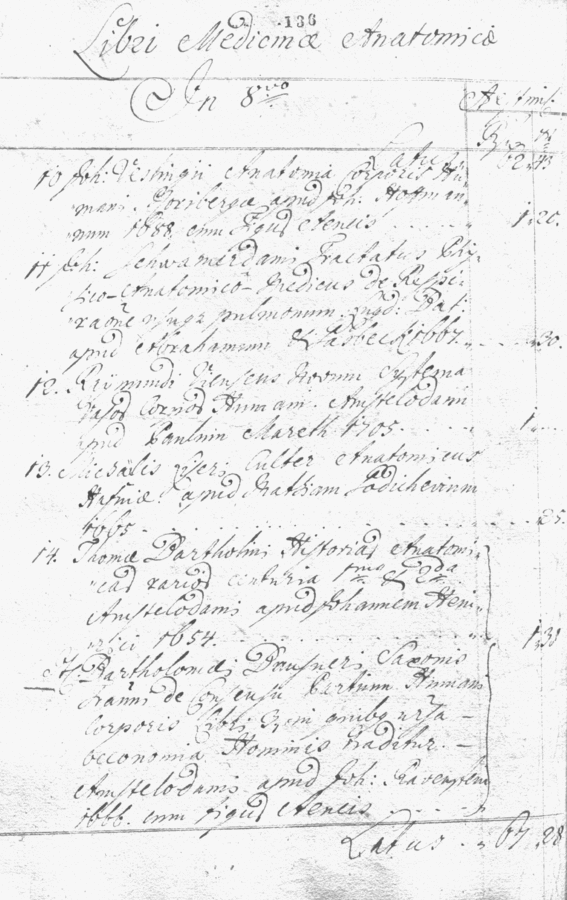 136
Libri Medicinæ Anatomicæ
In 8vo
Æstim:
Latus 62 43
10 Joh: Veslingii Anatomia Corporis Hu-
mani. apud Joh: Hoffman-
num 1688 cum Figuris Æneis 1 20.
11 Joh: Swamerdami Tractatus Phy-
sico-Anatomico-Medicus de Respi-
raõne usuqz pulmonum. Lugd: Bat:
apud Abrahamum 1667. 30.
12. Reymundi Vieusens Novum Systema
Vasor Corporis Humani. Amstelodami
apud Paulum Mareth 1705 1
13. Michaëlis Lyseri Culter Anatomicus
Hafniæ apud
1665 25.
14. Thomæ Bartholini Historiar Anatomi-
car rarior centuria 1ma & 2da
Amstelodami apud Johannem Hen-
rici 1654. 1 30
15. Bartholomæi Saxonis
de Consensu Partium Humani
Corporis Libri
Hominis traditur.
Amstelodami apud Joh: Ravestein
1666. cum figuris Æneis
Latus 67 28